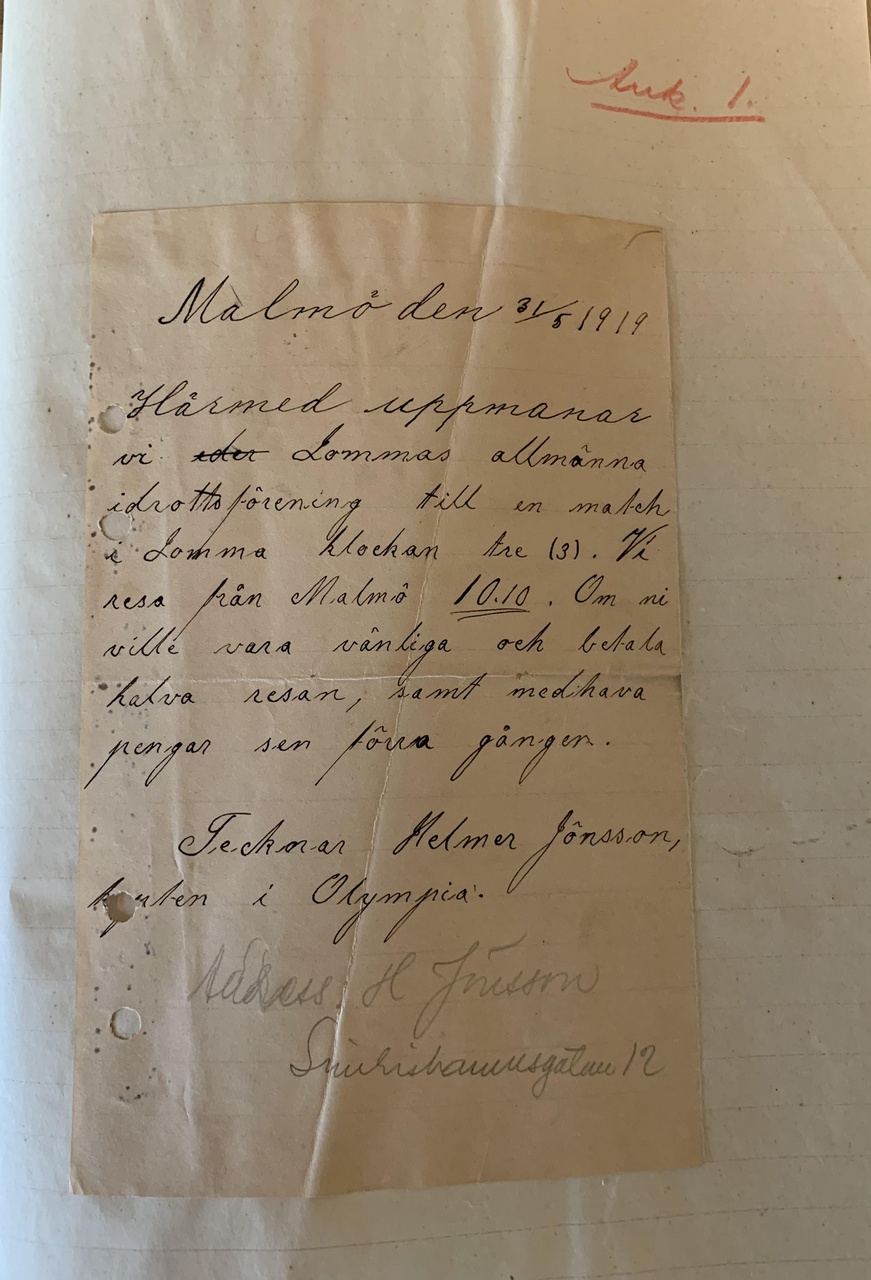 Ank. 1.
Malmö den 31/5 1919
Härmed uppmanar
vi eder Lommas allmänna
idrottsförening till en match
i Lomma klockan tre (3). Vi
resa från Malmö 10.10. Om ni
ville vara vänliga och betala
halva resan, samt medhava
pengar sen förra gången.
Tecknar Helmer Jönsson,
i Olympia.
Adress. H Jönsson
Simrishamnsgatan 12